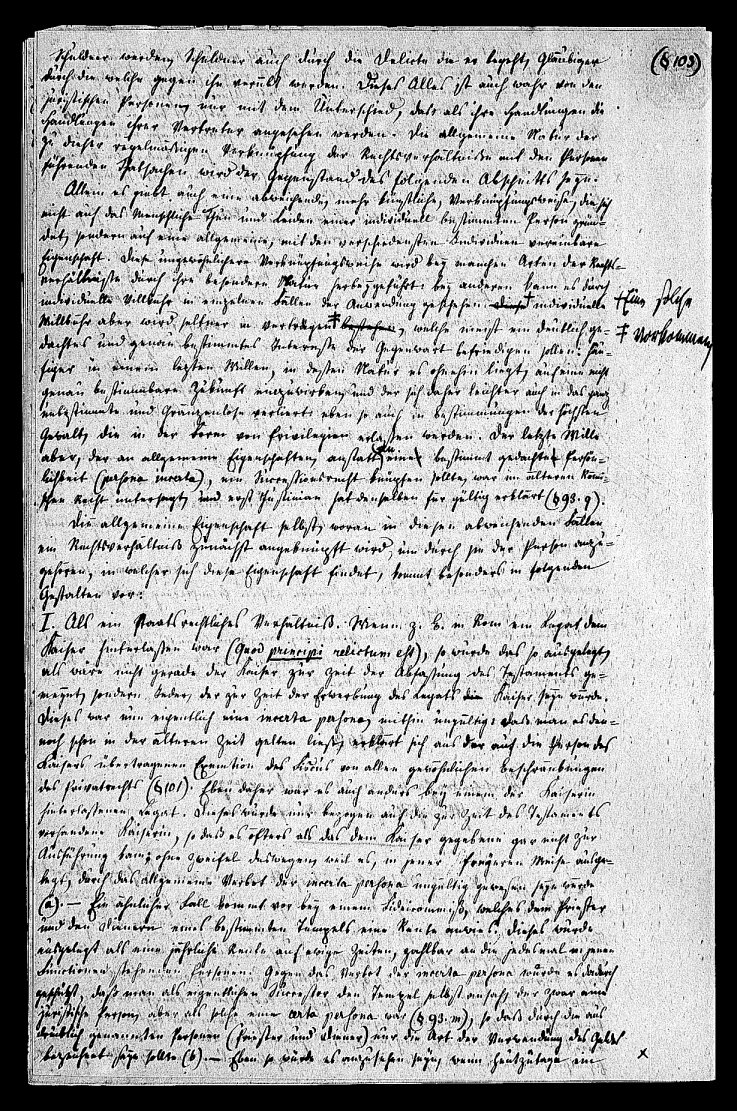 (§ 103)
Schuldner werden, Schuldner auch durch die Delicte die er begeht, Gläubiger
durch die welche gegen ihn verübt werden. Dieses Alles ist auch wahr von den
juristischen Personen, nur mit dem Unterschied, daß als ihre Handlungen die
Handlungen ihrer Vertreter angesehen werden. Die allgemeine Natur der
zu dieser regelmäßigen Verknüpfung der Rechtsverhältnisse mit den Personen
führenden Thatsachen wird der Gegenstand des folgenden Abschnitts seyn.
Allein es giebt auch eine abweichende, mehr künstliche, Verknüpfungsweise, die sich
nicht auf das menschliche Thun und Leiden einer individuell bestimmten Person grün-
det, sondern auf eine allgemeine, mit den verschiedensten Individuen vereinbare
Eigenschaft. Diese ungewöhnlichere Verknüpfungsweise wird bey manchen Arten der Rechts-
verhältnisse durch ihre besondere Natur herbeygeführt: bey anderen kann es durch
individuelle Willkühr in einzelnen Fällen der Anwendung geschehen. Diese † individuelle
† Eine solche
Willkühr aber wird seltner in Verträgen ‡ bestehen, welche meist ein deutlich ge-
‡ vorkommen,
dachtes und genau bestimmtes Interesse der Gegenwart befriedigen sollen: häu-
figer in einem letzten Willen, in dessen Natur es ohnehin liegt, auf eine nicht
genau bestimmbare Zukunft einzuwirken, und der sich daher leichter auch in das ganz
unbestimmte und Gränzenlose verliert: eben so auch in Bestimmungen der höchsten
Gewalt, die in der Form von Privilegien erlassen werden. Der letzte Wille
aber, der an allgemeine Eigenschaften, anstatt an eine bestimmt gedachte Persön-
lichkeit (persona incerta), ein Successionsrecht knüpfen sollte, war im älteren Römi-
schen Recht untersagt, und erst Justinian hat denselben für gültig erklärt (§ 93. q).
Die allgemeine Eigenschaft selbst, woran in diesen abweichenden Fällen
ein Rechtsverhältniß zunächst angeknüpft wird, um durch sie der Person anzu-
gehören, in welcher sich diese Eigenschaft findet, kommt besonders in folgenden
Gestalten vor:
I. Als ein staatsrechtliches Verhältniß. Wenn z. B. in Rom ein Legat dem
Kaiser hinterlassen war (quod principi relictum est), so wurde das so ausgelegt,
als wäre nicht gerade der Kaiser zur Zeit der Abfassung des Testaments ge-
meynt, sondern Jeder, der zur Zeit der Erwerbung des Legats Kaiser seyn würde.
Dieses war nun eigentlich eine incerta persona, mithin ungültig: daß man es den-
noch schon in der älteren Zeit gelten ließ, erklärt sich aus der auf die Person des
Kaisers übertragenen Exemtion des Fiscus von allen gewöhnlichen Beschränkungen
des Privatrechts (§ 101). Eben daher war es auch anders bey einem der Kaiserin
hinterlassenen Legat. Dieses wurde nur bezogen auf die zur Zeit des Testaments
vorhandene Kaiserin, so daß es öfters als das dem Kaiser gegebene gar nicht zur
Ausführung kam, ohne Zweifel deswegen, weil es, in jener freyeren Weise ausge-
legt, durch das allgemeine Verbot der incerta persona ungültig gewesen seyn würde
(a). — Ein ähnlicher Fall kommt vor bey einem Fideicommiß, welches dem Priester
und den Dienern eines bestimmten Tempels eine Rente anwies. Dieses wurde
ausgelegt als eine jährliche Rente auf ewige Zeiten, zahlbar an die jedesmal in jenen
Functionen stehenden Personen. Gegen das Verbot der incerta persona wurde es dadurch
geschützt, daß man als eigentlichen Successor den Tempel selbst ansah, der zwar eine
juristische Person, aber als solche eine certa persona war (§ 93. m), so daß durch die aus-
drücklich genannten Personen (Priester und Diener) nur die Art der Verwendung des Geldes
bezeichnet seyn sollte (b). — Eben so würde es anzusehen seyn, wenn heutzutage ein
x